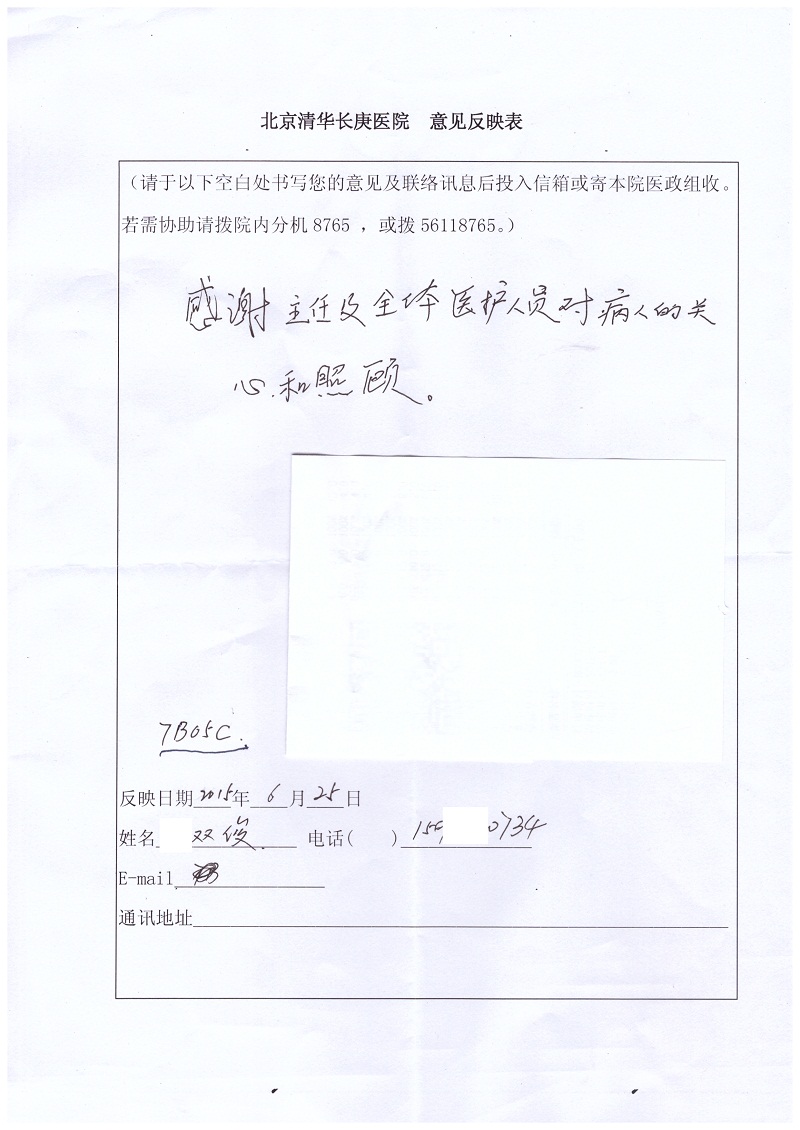 北京清华长庚医院 意见反映表
（请于以下空白处书写您的意见及联络讯息后投入信箱或寄本院医政组收。
若需协助请拨院内分机 8765 ，或拨 56118765。）
感谢主任及全体医护人员对病人的关
心和照顾。
7B05C.
反映日期2015年 6 月 25 日
姓名 双俊 电话( ) 159 0734
E-mail
通讯地址